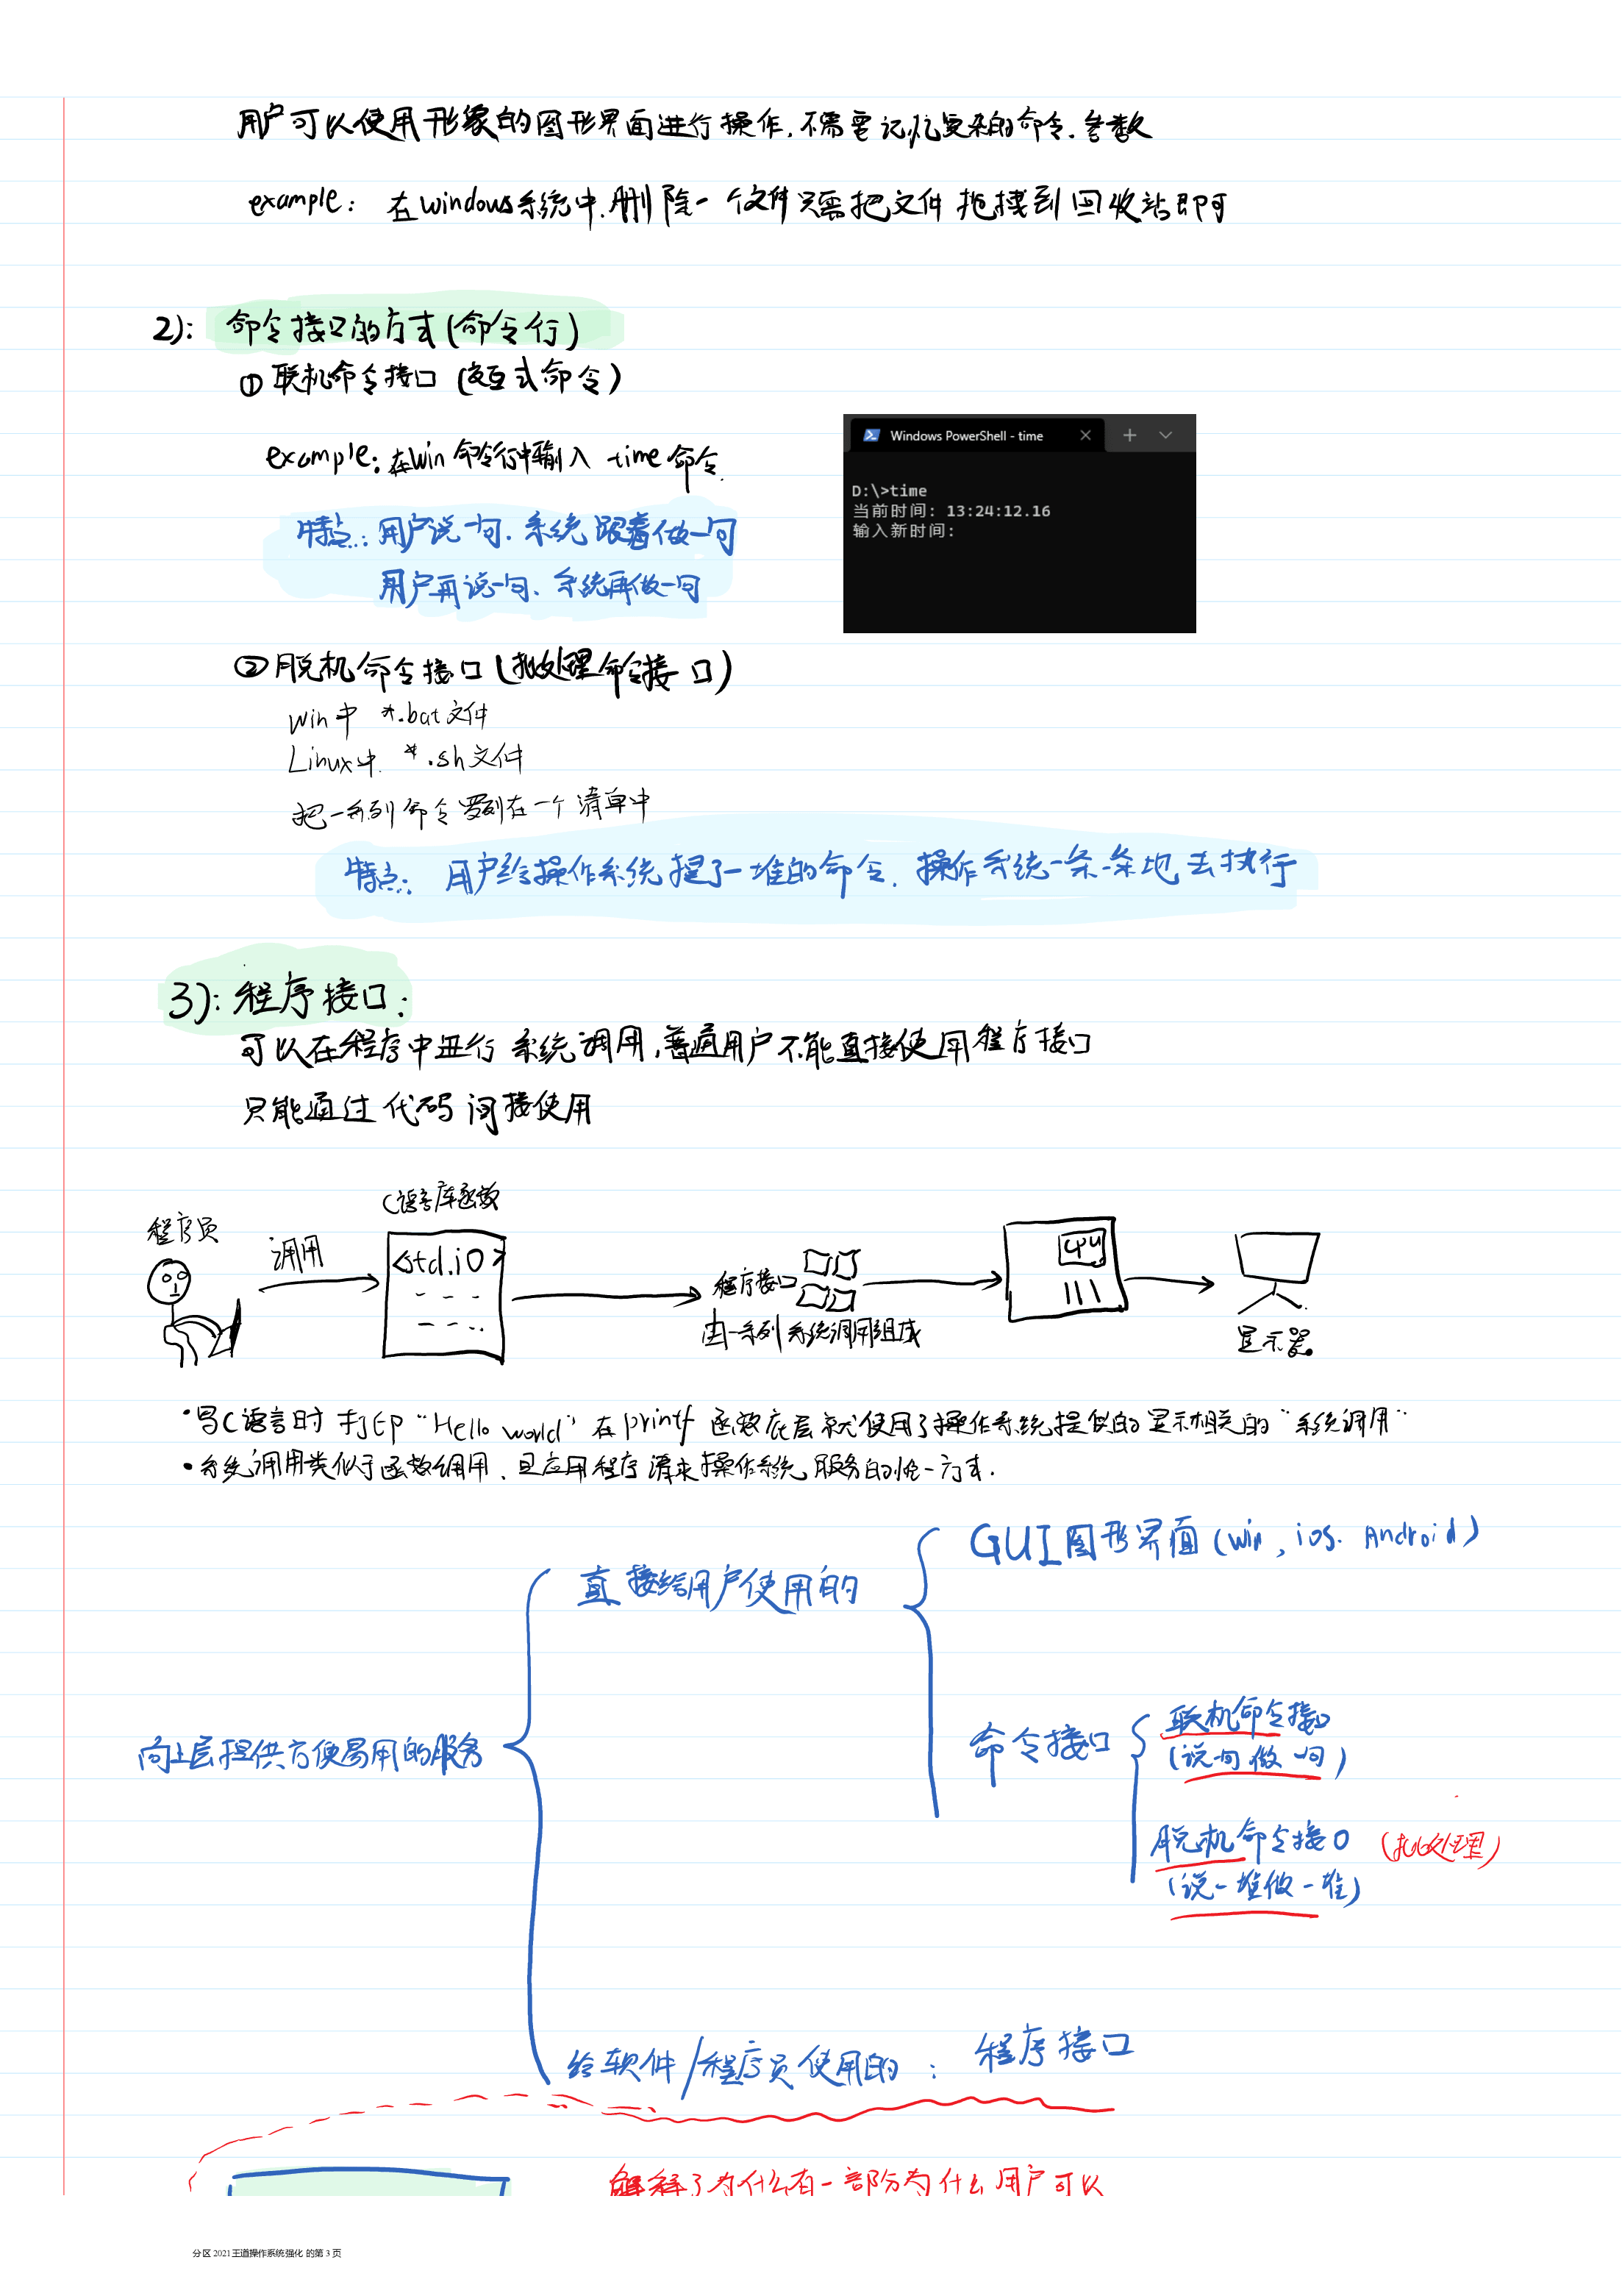 用户可以使用形象的图形界面进行操作,不需要记忆复杂的命令、参数
example: 在windows系统中,删除一个文件只需把文件拖拽到回收站即可
2): 命令接口的方式(命令行)
① 联机命令接口 (交互式命令)
example: 在Win命令行中输入 time 命令.
Windows PowerShell - time
D:\>time
当前时间: 13:24:12.16
输入新时间:
特点: 用户说一句、系统跟着做一句
用户再说一句、系统再做一句
② 脱机命令接口 (批处理命令接口)
Win中 *.bat文件
Linux中. *.sh文件
把一系列命令罗列在一个清单中
特点: 用户给操作系统提了一堆的命令. 操作系统一条一条地去执行
3): 程序接口:
可以在程序中进行系统调用,普通用户不能直接使用程序接口
只能通过代码间接使用
C语言库函数
程序员
调用
<std.io>
程序接口
由一系列系统调用组成
CPU
显示器
·写C语言时 打印 "Hello world" 在printf 函数底层就使用了操作系统提供的显示相关的"系统调用"
·系统调用类似于函数调用、是应用程序请求操作系统服务的唯一方式.
GUI图形界面 (Win, ios. Android)
直接给用户使用的
联机命令接口
命令接口
(说一句做一句)
向上层提供方便易用的服务
脱机命令接口 (批处理)
(说一堆做一堆)
给软件/程序员使用的: 程序接口
解释了为什么有一部分为什么用户可以
分区 2021王道操作系统强化 的第 3 页